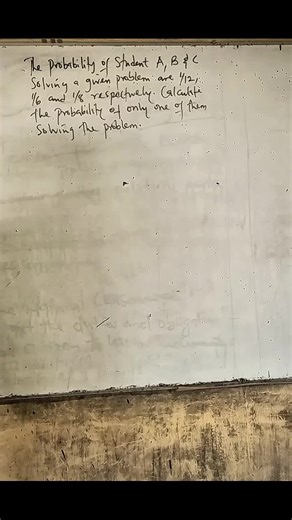 The Probability of Student A, B & C
Solving a given problem are 1/12,
1/6 and 1/8 respectively. Calculate
the probability of only one of them
Solving the problem.